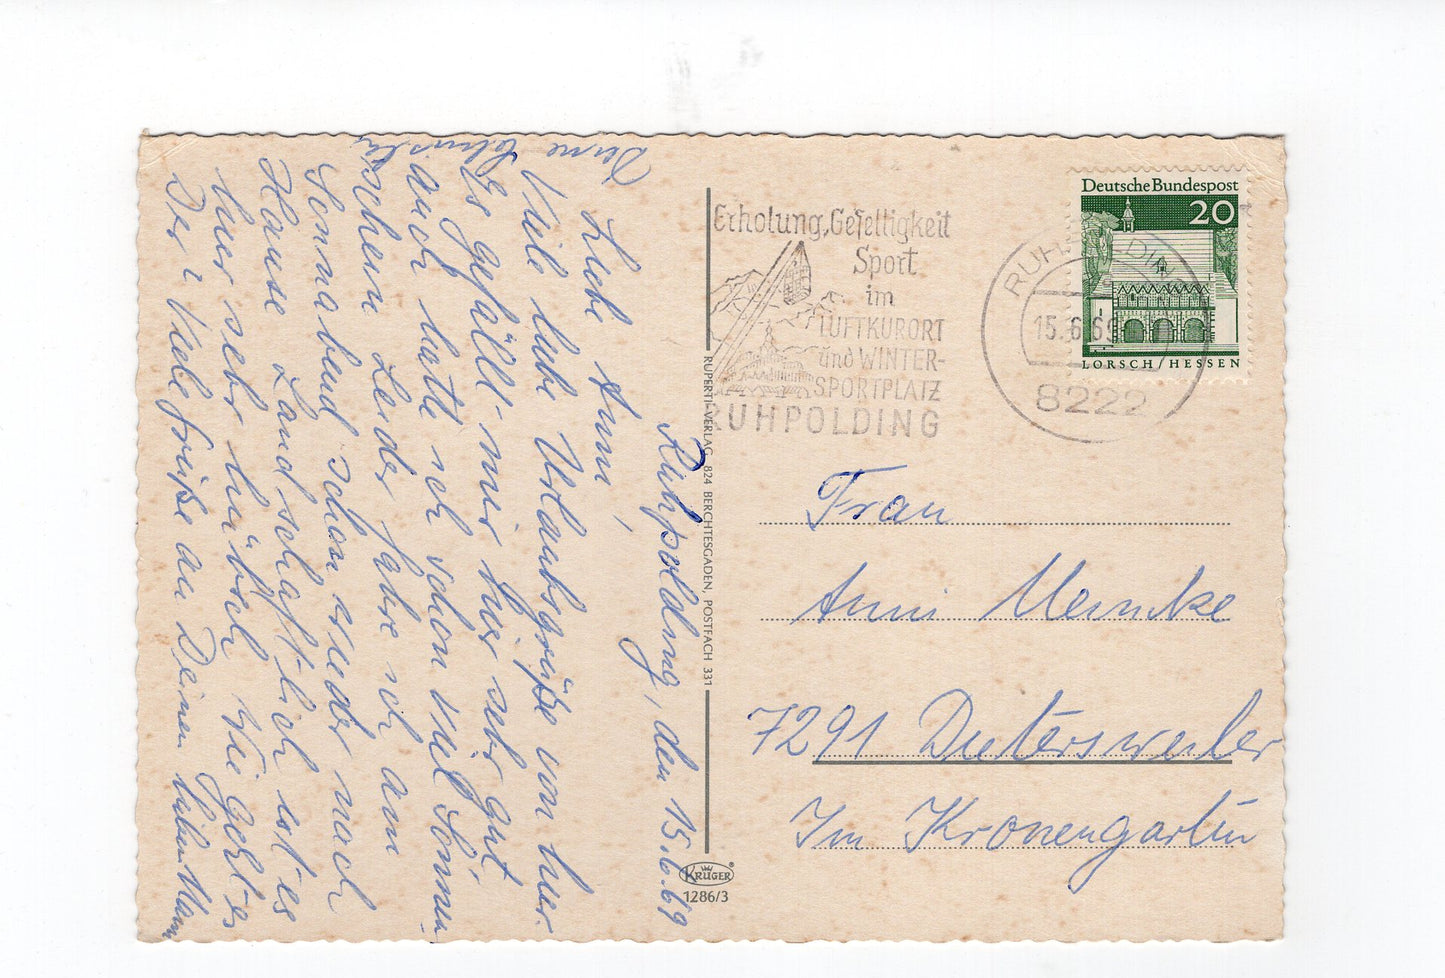 Ruhpolding, den 15.6.69
Liebe Anni,
Viele liebe Urlaubsgrüße von hier.
Es gefällt mir hier sehr gut,
auch hatte ich schon viel Sonnen-
schein. Leider fahre ich am
Sonnabend schon wieder nach
Hause. Landschaftlich ist es
hier sehr hübsch. Wie geht es
Dir? Viele Grüße an Deinen lieben Mann
Deine
Erholung, Geselligkeit
Sport
im
LUFTKURORT
und WINTER-
SPORTPLATZ
RUHPOLDING
RUHPOLDING
15.6.69
8222
Deutsche Bundespost
20
LORSCH/HESSEN
RUPERTI-VERLAG, 824 BERCHTESGADEN, POSTFACH 331
KRÜGER
1286/3
Frau
Anni Meincke
7291 Dietersweiler
Im Kronengarten